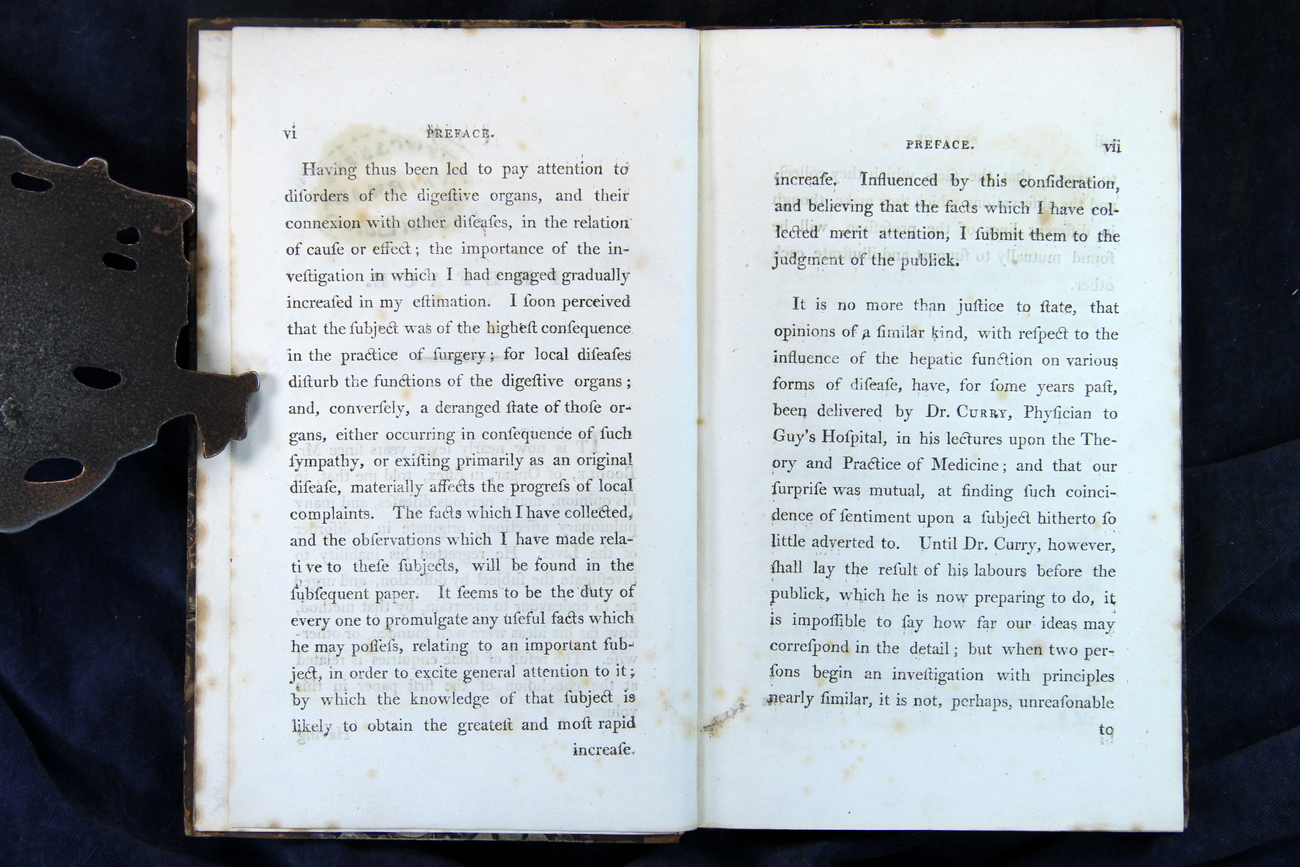 vi PREFACE.
Having thus been led to pay attention to
diſorders of the digeſtive organs, and their
connexion with other diſeaſes, in the relation
of cauſe or effect; the importance of the in-
veſtigation in which I had engaged gradually
increaſed in my eſtimation. I ſoon perceived
that the ſubject was of the higheſt conſequence
in the practice of ſurgery; for local diſeaſes
diſturb the functions of the digeſtive organs;
and, converſely, a deranged ſtate of thoſe or-
gans, either occurring in conſequence of ſuch
ſympathy, or exiſting primarily as an original
diſeaſe, materially affects the progreſs of local
complaints. The facts which I have collected,
and the obſervations which I have made rela-
ti ve to theſe ſubjects, will be found in the
ſubſequent paper. It ſeems to be the duty of
every one to promulgate any uſeful facts which
he may poſſeſs, relating to an important ſub-
ject, in order to excite general attention to it;
by which the knowledge of that ſubject is
likely to obtain the greateſt and moſt rapid
increaſe.
PREFACE. vii
increaſe. Influenced by this conſideration,
and believing that the facts which I have col-
lected merit attention, I ſubmit them to the
judgment of the publick.
It is no more than juſtice to ſtate, that
opinions of a ſimilar kind, with reſpect to the
influence of the hepatic function on various
forms of diſeaſe, have, for ſome years paſt,
been delivered by Dr. CURRY, Phyſician to
Guy's Hoſpital, in his lectures upon the The-
ory and Practice of Medicine; and that our
ſurpriſe was mutual, at finding ſuch coinci-
dence of ſentiment upon a ſubject hitherto ſo
little adverted to. Until Dr. Curry, however,
ſhall lay the reſult of his labours before the
publick, which he is now preparing to do, it
is impoſſible to ſay how far our ideas may
correſpond in the detail; but when two per-
ſons begin an inveſtigation with principles
nearly ſimilar, it is not, perhaps, unreaſonable
to